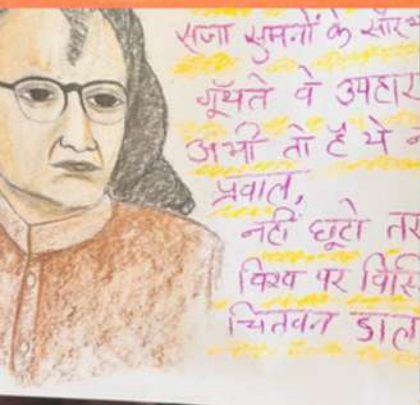 सजा सुमनों के सौरभ
गूँथते वे उपहार
अभी तो हैं ये न
प्रवाल,
नहीं छूटो तरु
विश्व पर विस्मि
चितवन डाल